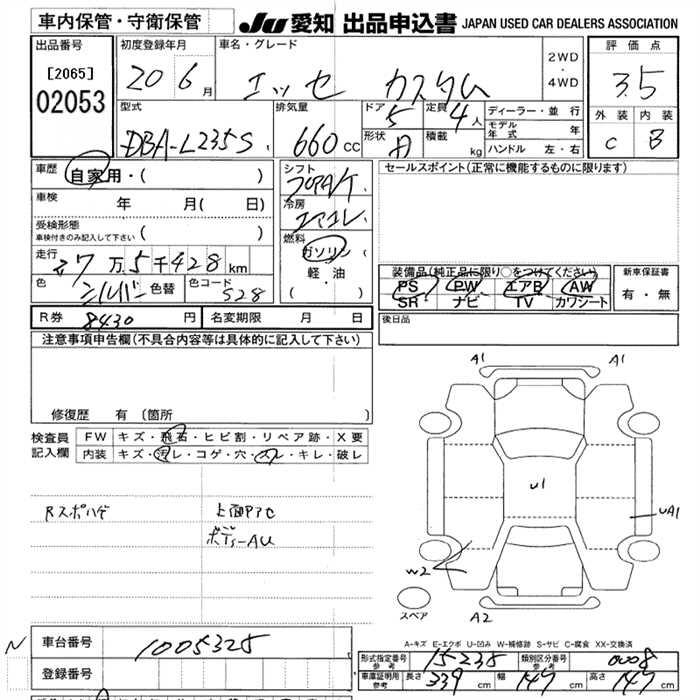 車内保管・守衛保管
JU 愛知 出品申込書 JAPAN USED CAR DEALERS ASSOCIATION
出品番号
[2065]
02053
初度登録年月
20 6 月
車名・グレード
エッセ カスタム
2WD
・
4WD
評価点
3.5
外装 内装
C B
型式
DBA-L235S
排気量
660 cc
ドア 5
形状
定員 4 人
積載 kg
ディーラー・並行
モデル年式 年
ハンドル 左・右
車歴
自家用・( )
車検 年 月( 日)
受検形態
車検付きのみ記入して下さい ( )
走行
7 万 5 千 428 km
色 シルバー 色替 色コード S28
シフト
フロアA/T
冷房
エアコン
燃料
ガソリン
軽油
( )
セールスポイント(正常に機能するものに限ります)
装備品(純正品に限り○をつけてください)
PS PW エアB AW
SR ナビ TV カワシート
新車保証書
有・無
R券 8430 円 名変期限 月 日
後日品
注意事項申告欄(不具合内容等は具体的に記入して下さい)
修復歴 有 〔箇所 〕
検査員
記入欄
FW キズ・飛石・ヒビ割・リペア跡・X要
内装 キズ・汚レ・コゲ・穴・スレ・キレ・破レ
Rスポハゲ
上面P7C
ボディ-AU
A1 A1
U1
UA1
W2
スペア
A2
A-キズ E-エクボ U-凹み W-補修跡 S-サビ C-腐食 XX-交換済
N
車台番号 1005325
登録番号
形式指定番号
参考
15235
類別区分番号
参考
0008
車庫証明用
参考
長さ 339 cm 幅 147 cm 高さ 147 cm